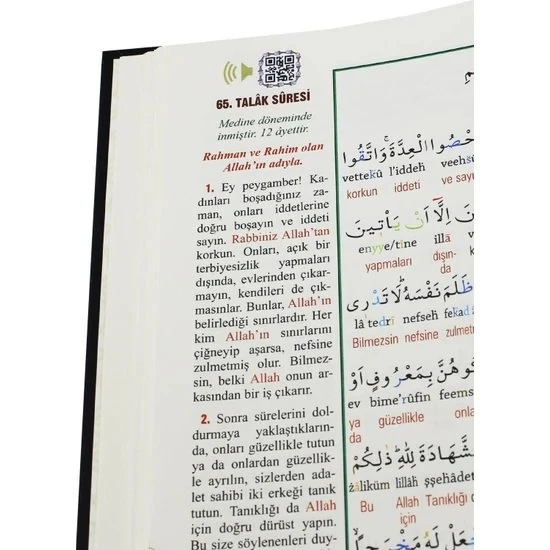 65. TALÂK SÛRESİ
Medine döneminde
inmiştir. 12 âyettir.
Rahman ve Rahim olan
Allah'ın adıyla.
1. Ey peygamber! Ka-
dınları boşadığınız za-
man, onları iddetlerine
doğru boşayın ve iddeti
sayın. Rabbiniz Allah'tan
korkun. Onları, açık bir
terbiyesizlik yapmaları
dışında, evlerinden çıkar-
mayın, kendileri de çık-
masınlar. Bunlar, Allah'ın
belirlediği sınırlardır. Her
kim Allah'ın sınırlarını
çiğneyip aşarsa, nefsine
zulmetmiş olur. Bilmez-
sin, belki Allah onun ar-
kasından bir iş çıkarır.
2. Sonra sürelerini dol-
durmaya yaklaştıkların-
da, onları güzellikle tutun
ya da onlardan güzellik-
le ayrılın, sizlerden ada-
let sahibi iki erkeği tanık
tutun. Tanıklığı da Allah
için doğru dürüst yapın.
Bu size söylenenleri duy-
حْصُوا الْعِدَّةَۚ وَاتَّقُوا
vettekû l'iddeh veehs
korkun iddeti ve sayı
اِلَّٓا اَنْ يَأْت۪ينَ
enyye/tine illâ
yapmaları dışın-
da
ظَلَمَ نَفْسَهُۜ لَا تَدْر۪ي
lâ tedrî nefseh fekad
Bilmezsin nefsine zulmet
هُنَّ بِمَعْرُوفٍ اَوْ
ev bime'rûfin feems
ya güzellikle onla
da
الشَّهَادَةَ لِلّٰهِۜ ذٰلِكُمْ
zâliküm lillâh şşehâdet
Bu Allah Tanıklığı d
için